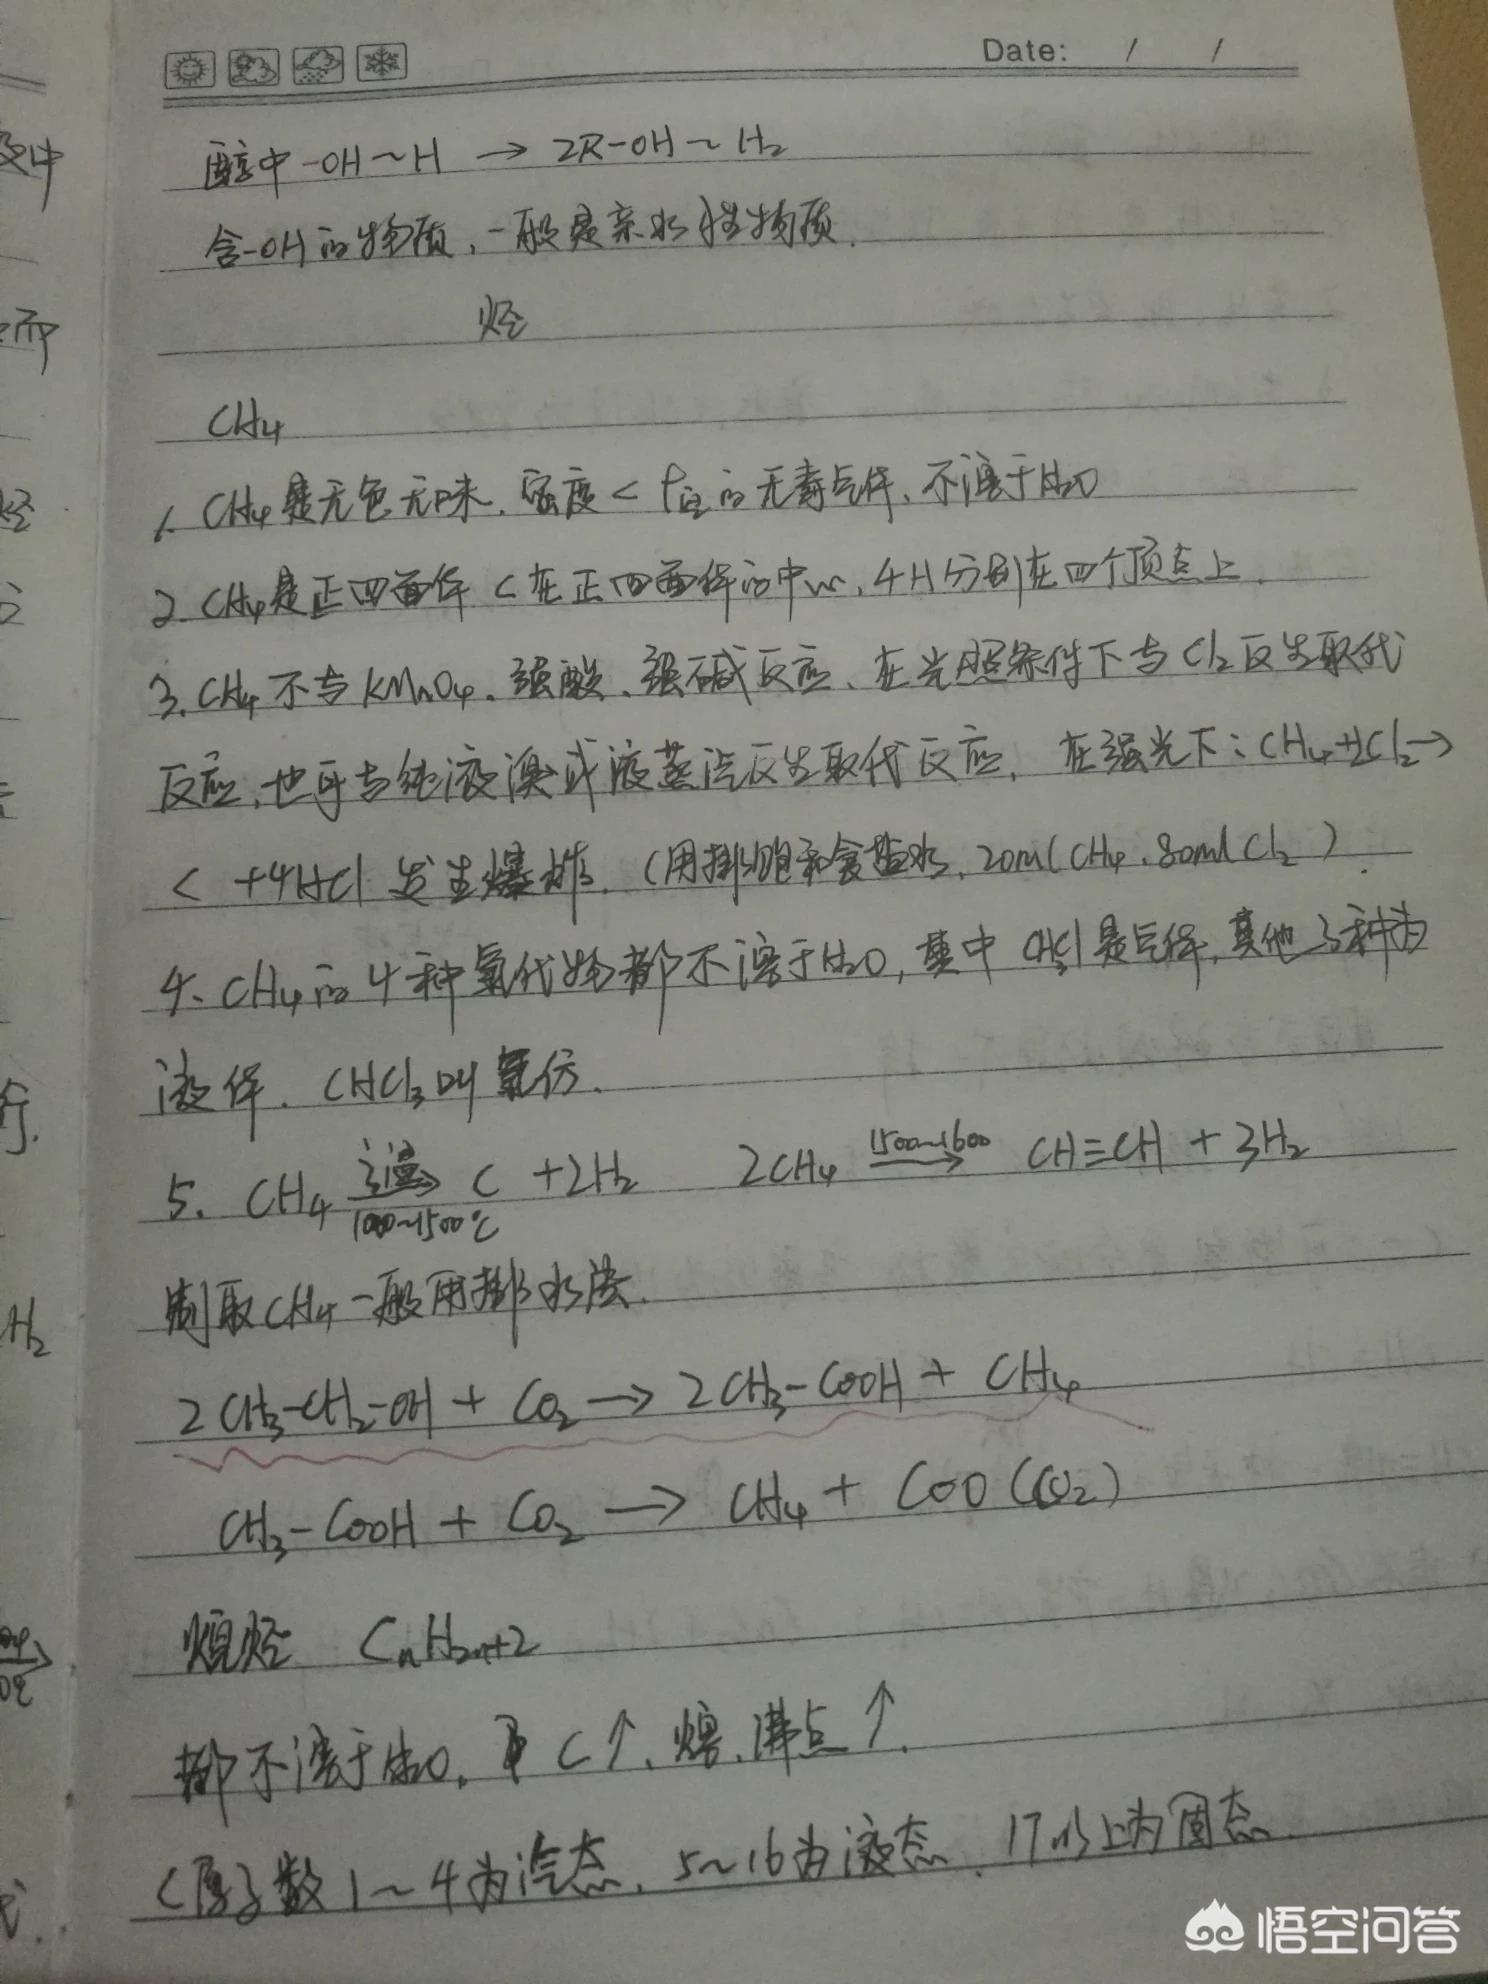 Date: / /
醇中-OH～H → 2R-OH～H₂
含-OH的物质,一般是亲水性物质.
烃
CH₄
1. CH₄是无色无味.密度<ρ空的无毒气体、不溶于H₂O
2. CH₄是正四面体 C在正四面体的中心,4H分别在四个顶点上.
3. CH₄不与KMnO₄、强酸、强碱反应、在光照条件下与Cl₂反生取代
反应,也可与纯液溴或液蒸汽反生取代反应, 在强光下:CH₄+2Cl₂→
C +4HCl 发生爆炸.(用排饱和食盐水,20ml CH₄.80ml Cl₂)
4、CH₄的4种氯代物都不溶于H₂O,其中CH₃Cl是气体,其他3种为
液体. CHCl₃叫氯仿.
5. CH₄ 高温→ 1000～1500℃ C +2H₂ 2CH₄ 1500～1600→ CH≡CH + 3H₂
制取CH₄一般用排水法.
2CH₃-CH₂-OH + CO₂ → 2CH₃-COOH + CH₄
CH₃-COOH + CO₂ → CH₄ + COO (CO₂)
烷烃 CnH2n+2
都不溶于H₂O, C↑、熔、沸点↑.
C原子数1～4为汽态、5～16为液态、17以上为固态.
悟空问答